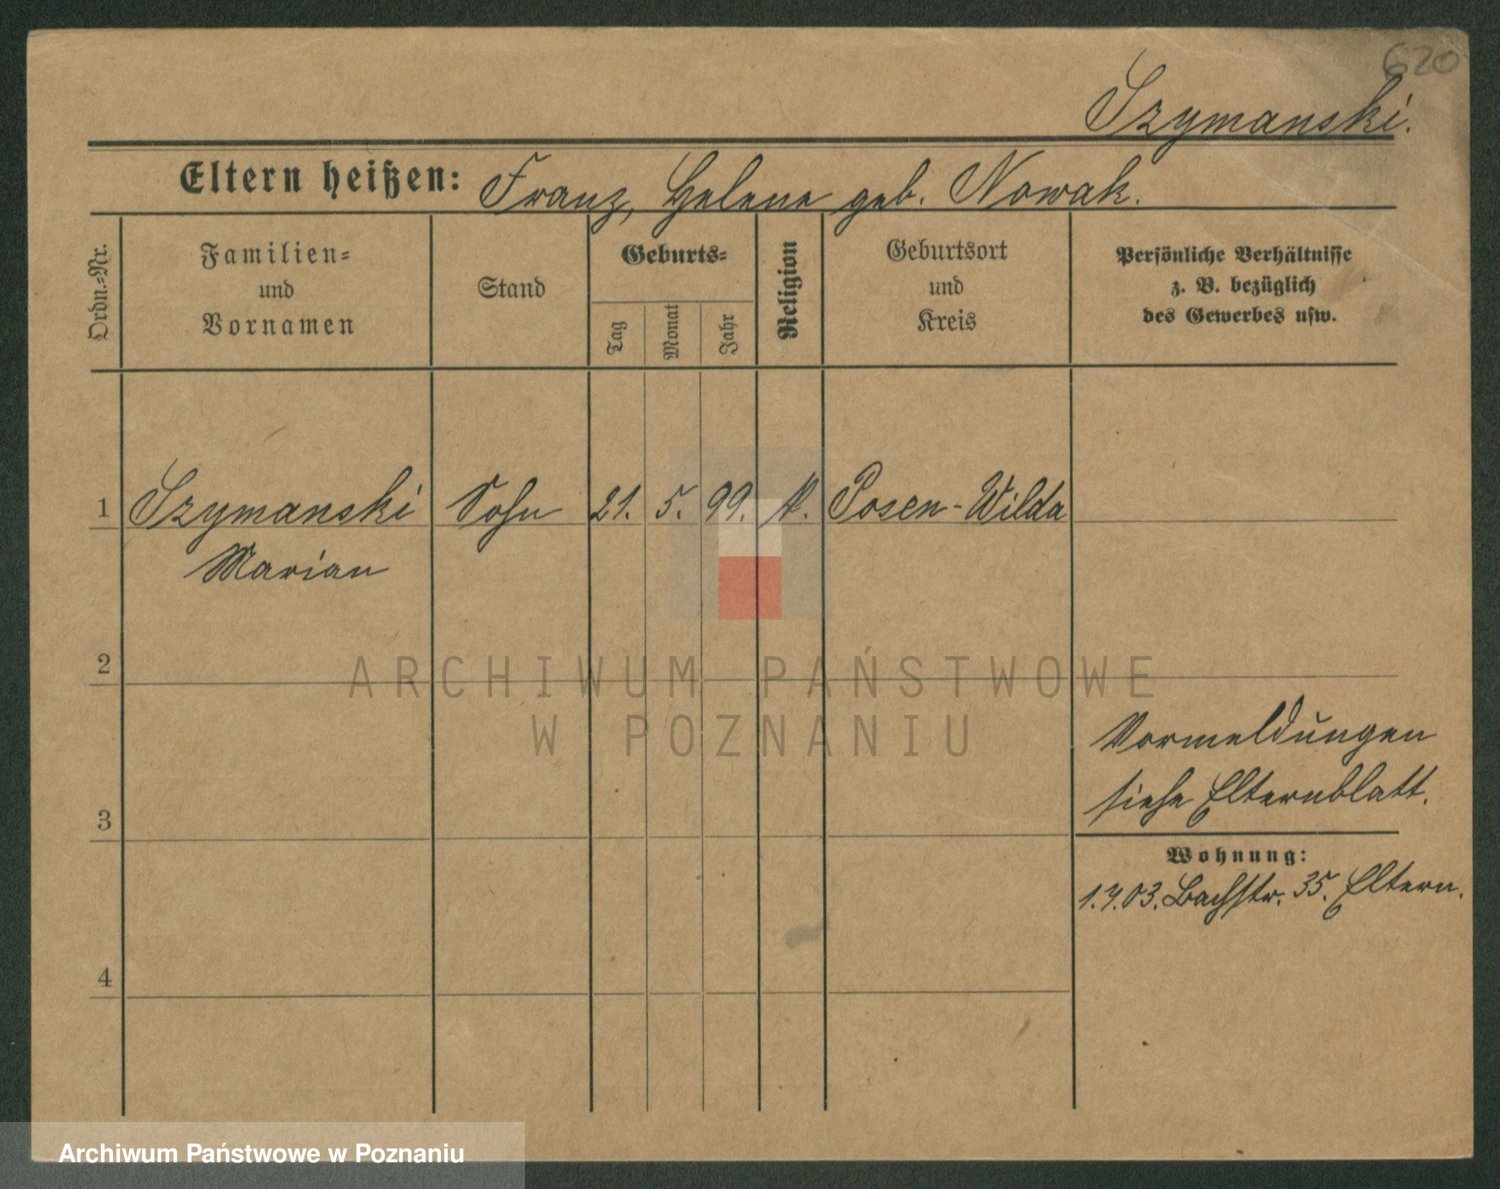 620
Szymanski.
Eltern heißen: Franz, Helene geb. Nowak.
Ordn.-Nr.
Familien-
und
Vornamen
Stand
Geburts-
Tag
Monat
Jahr
Religion
Geburtsort
und
Kreis
Persönliche Verhältnisse
z. B. bezüglich
des Gewerbes usw.
1 Szymanski Sohn 21. 5. 99. k. Posen-Wilda
Marian
2
ARCHIWUM PAŃSTWOWE
W POZNANIU
Vormeldungen
siehe Elternblatt.
3
Wohnung:
1.4.03. Bachstr. 35. Eltern.
4
Archiwum Państwowe w Poznaniu